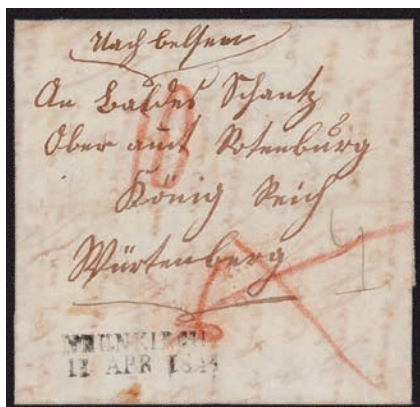 Nach belsen
An Baldes Schantz
Ober amt Rotenburg
König Reich
Würtenberg
NEUNKIRCH
11 APR